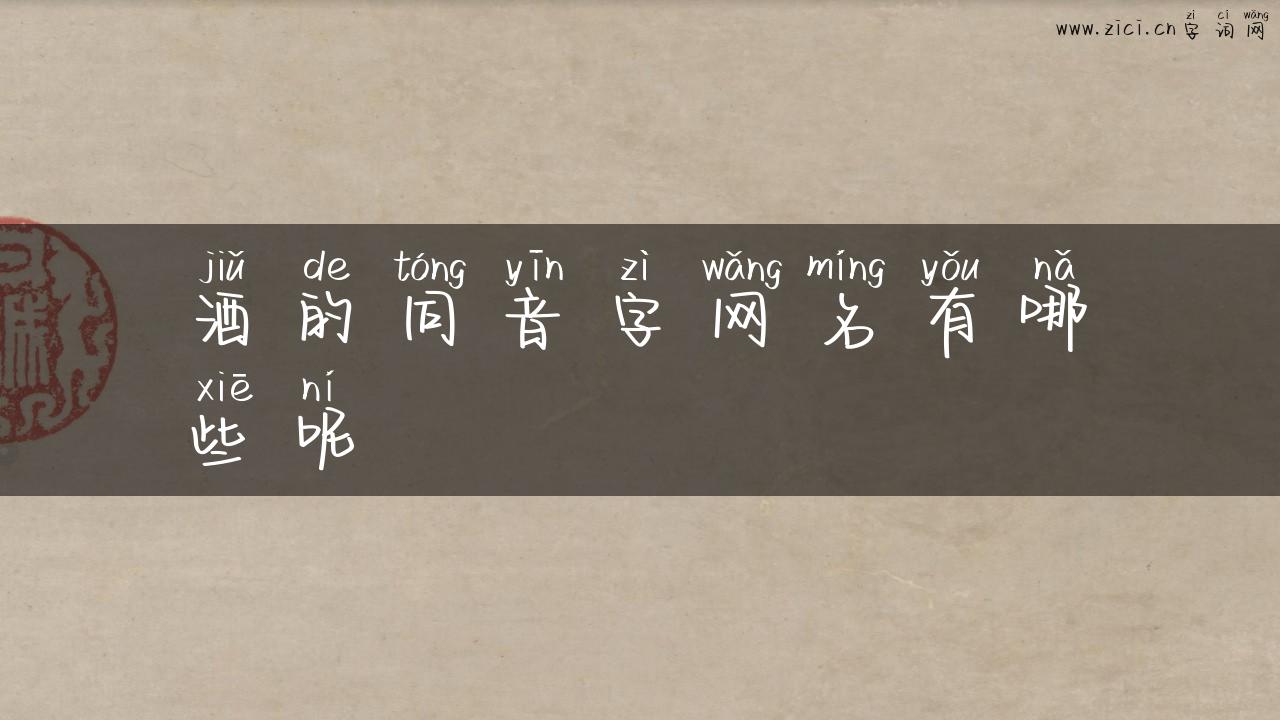 zì cí wǎng
www.zici.cn字词网
jiǔ de tóng yīn zì wǎng míng yǒu nǎ
酒的同音字网名有哪
xiē ní
些呢